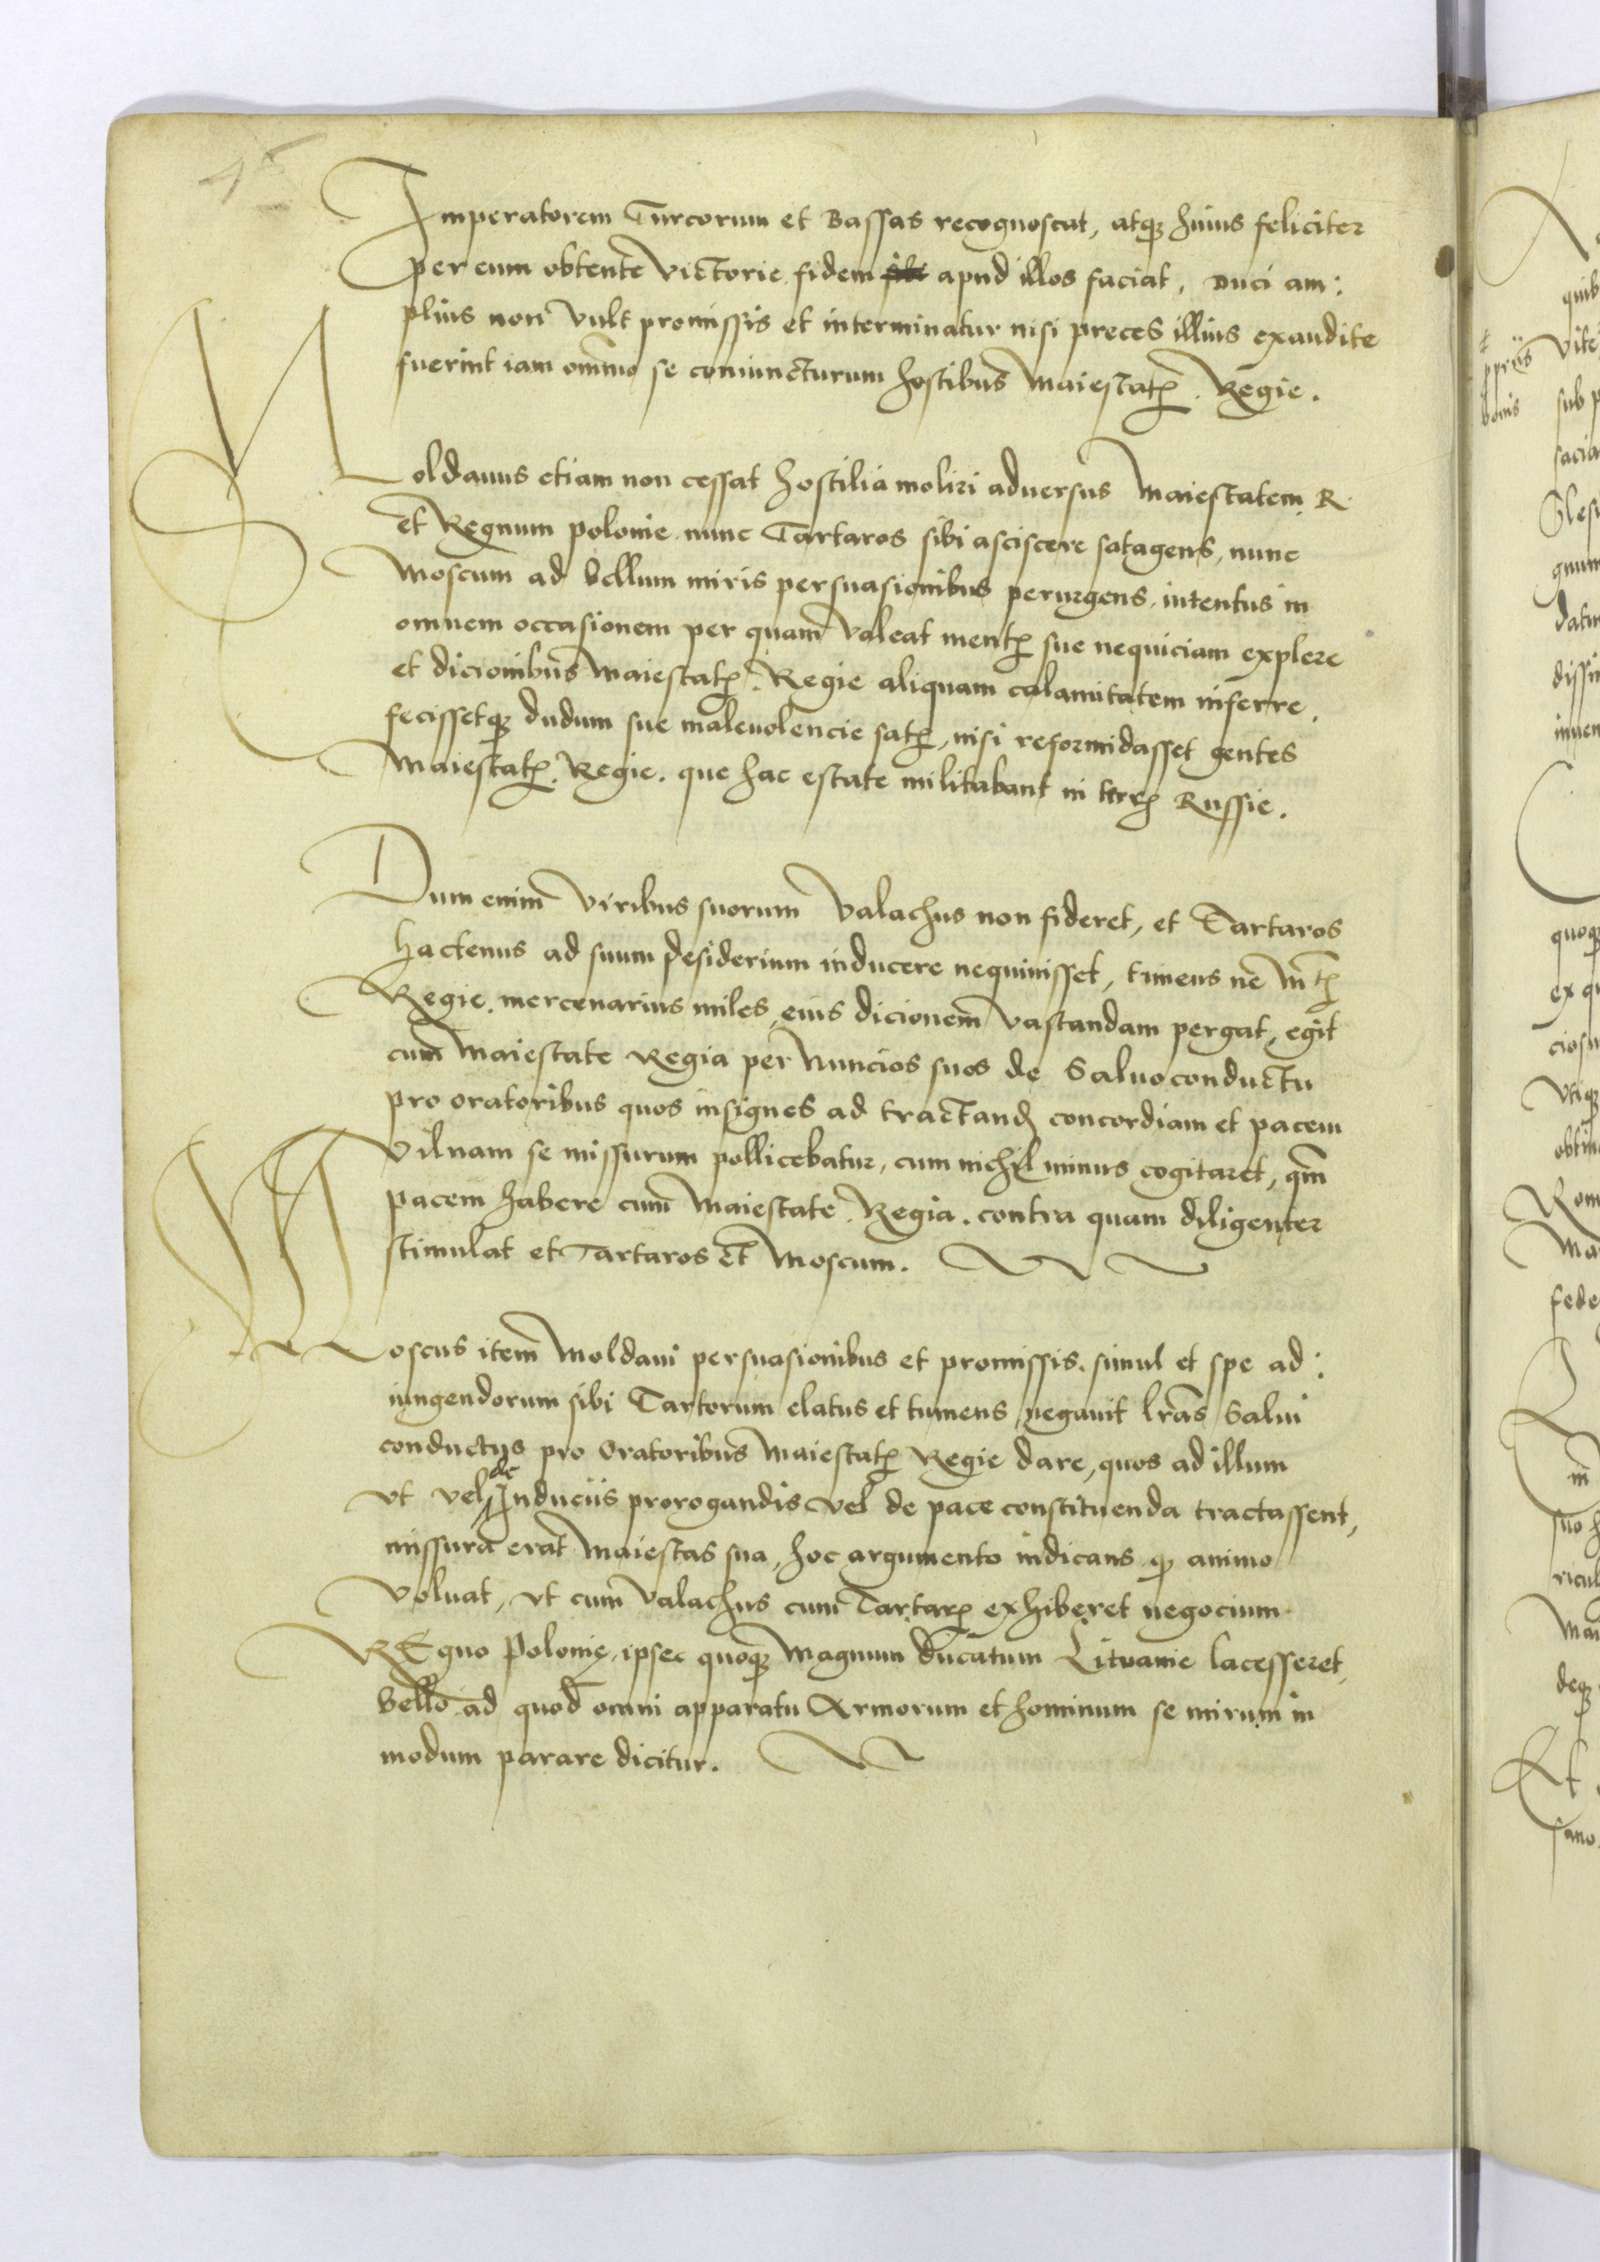 Imperatorem Turcorum et Bassas recognoscat, atqꝫ huius feliciter
per eum obtente victorie fidem sibi apud illos faciat, Duci am:
plius non vult promissis et interminatur nisi preces illius exaudite
fuerint iam omnino se coniuncturum hostibus Maiestatꝭ Regie.
Moldauus etiam non cessat hostilia moliri aduersus Maiestatem R.
et Regnum polonie nunc Tartaros sibi asciscere satagens, nunc
Moscum ad bellum miris persuasionibus perurgens, intentus in
omnem occasionem per quam valeat mentꝭ sue nequiciam explere
et dicionibus Maiestatꝭ Regie aliquam calamitatem inferre.
fecissetqꝫ dudum sue maleuolencie satꝭ, nisi reformidasset gentes
Maiestatꝭ Regie. que hac estate militabant in terrꝭ Russie.
Dum enim viribus suorum Valachus non fideret, et Tartaros
hactenus ad suum desiderium inducere nequiuisset, timens ne Mtꝭ
Regie. mercenarius miles, eius dicionem vastandam pergat, egit
cum Maiestate Regia per Nuncios suos de Saluoconductu
pro oratoribus quos insignes ad tractandꝭ concordiam et pacem
Vilnam se missurum pollicebatur, cum nichil minus cogitaret, qm̄
pacem habere cum Maiestate Regia. contra quam diligenter
stimulat et Tartaros et Moscum.
Moscus item Moldaui persuasionibus et promissis. simul et spe ad:
iungendorum sibi Tartorum elatus et tumens, negauit lrās Salui
conductus pro Oratoribus Maiestatꝭ Regie dare, quos ad illum
vt vel de Induciis prorogandis vel de pace constituenda tractassent,
missura erat Maiestas sua, hoc argumento indicans qꝫ animo
voluat, vt cum Valachus cum Tartarꝭ exhiberet negocium
REgno Polonie, ipse quoqꝫ Magnum ducatum Lituanie lacesseret
bello ad quod omni apparatu Armorum et hominum se mirum in
modum parare dicitur.
ppriis
bonis